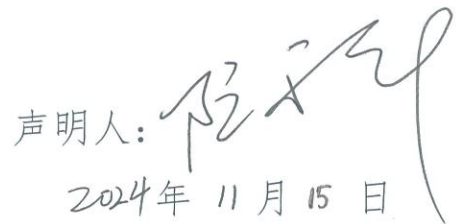 声明人：
2024年 11月 15日